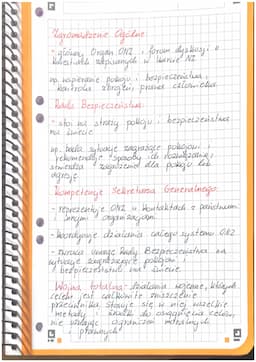 Zgromadzenie Ogólne:
- główny Organ ONZ i forum dyskusji o
kwestiach zapisanych w karcie NZ
np. wspieranie pokoju i bezpieczeństwa,
kontrola zbrojeń, prawa człowieka
Rada Bezpieczeństwa:
- stoi na straży pokoju i bezpieczeństwa
na świecie
np. bada sytuacje zagrażające pokojowi
rekomenduje sposoby ich rozwiązania,
stwierdza zagrożenie dla pokoju lub
agresję
Kompetencje Sekretarza Generalnego:
- reprezentuje ONZ w kontaktach z państwami
i innymi organizacjami
- koordynuje działania całego systemu ONZ
- zwraca uwagę Rady Bezpieczeństwa na
sytuacje zagrażające pokojowi
i bezpieczeństwu na świecie
Wojna totalna - działania wojenne, których
celem jest całkowite zniszczenie
przeciwnika. Stosuje się w niej wszelkie
metody i środki do osiągnięcia celów,
nie uznając ograniczeń moralnych
i prawnych